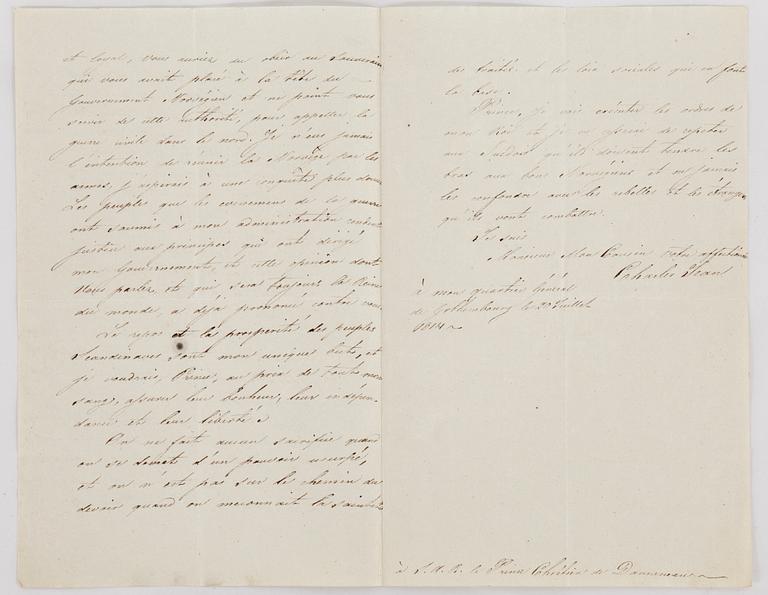 et loyal, vous auriez du obéir au Souverain
qui vous avait placé à la tête du
Gouvernement Norvégien et ne point vous
servir de cette authorité, pour appeller la
guerre civile dans le nord. Je n'eus jamais
l'intention de reunir la Norvège par les
armes, j'aspirais à une conquête plus douce
Les peuples que les evenemens de la guerre
ont soumis à mon administration rendent
justice aux principes qui ont dirigé
mon Gouvernement, et cette opinion dont
Vous parlez et qui sera toujours la Reine
du monde, a déjà prononcé contre vous.
Le repos et la prosperité des peuples
Scandinaves sont mon unique but, et
je voudrais, Prince, au prix de tout mon
sang, assurer leur bonheur, leur indépen-
dance et leur liberté.
On ne fait aucun sacrifice quand
on se demet d'un pouvoir usurpé,
et on n'est pas sur le chemin du
devoir quand on meconnait la sainteté
des traités et les lois sociales qui en font
la base.
Prince, je vais exécuter les ordres de
mon Roi et je ne cesserai de repeter
aux Suedois qu'ils doivent tendre les
bras aux bons Norvégiens et ne jamais
les confondre avec les rebelles et les étrangers
qu'ils vont combattre.
Je suis
Monsieur Mon Cousin Votre affectionné
Charles Jean
à mon quartier Général
de Gothembourg le Juillet
1814
à S. A. R. le Prince Chrétien de Dannemarc